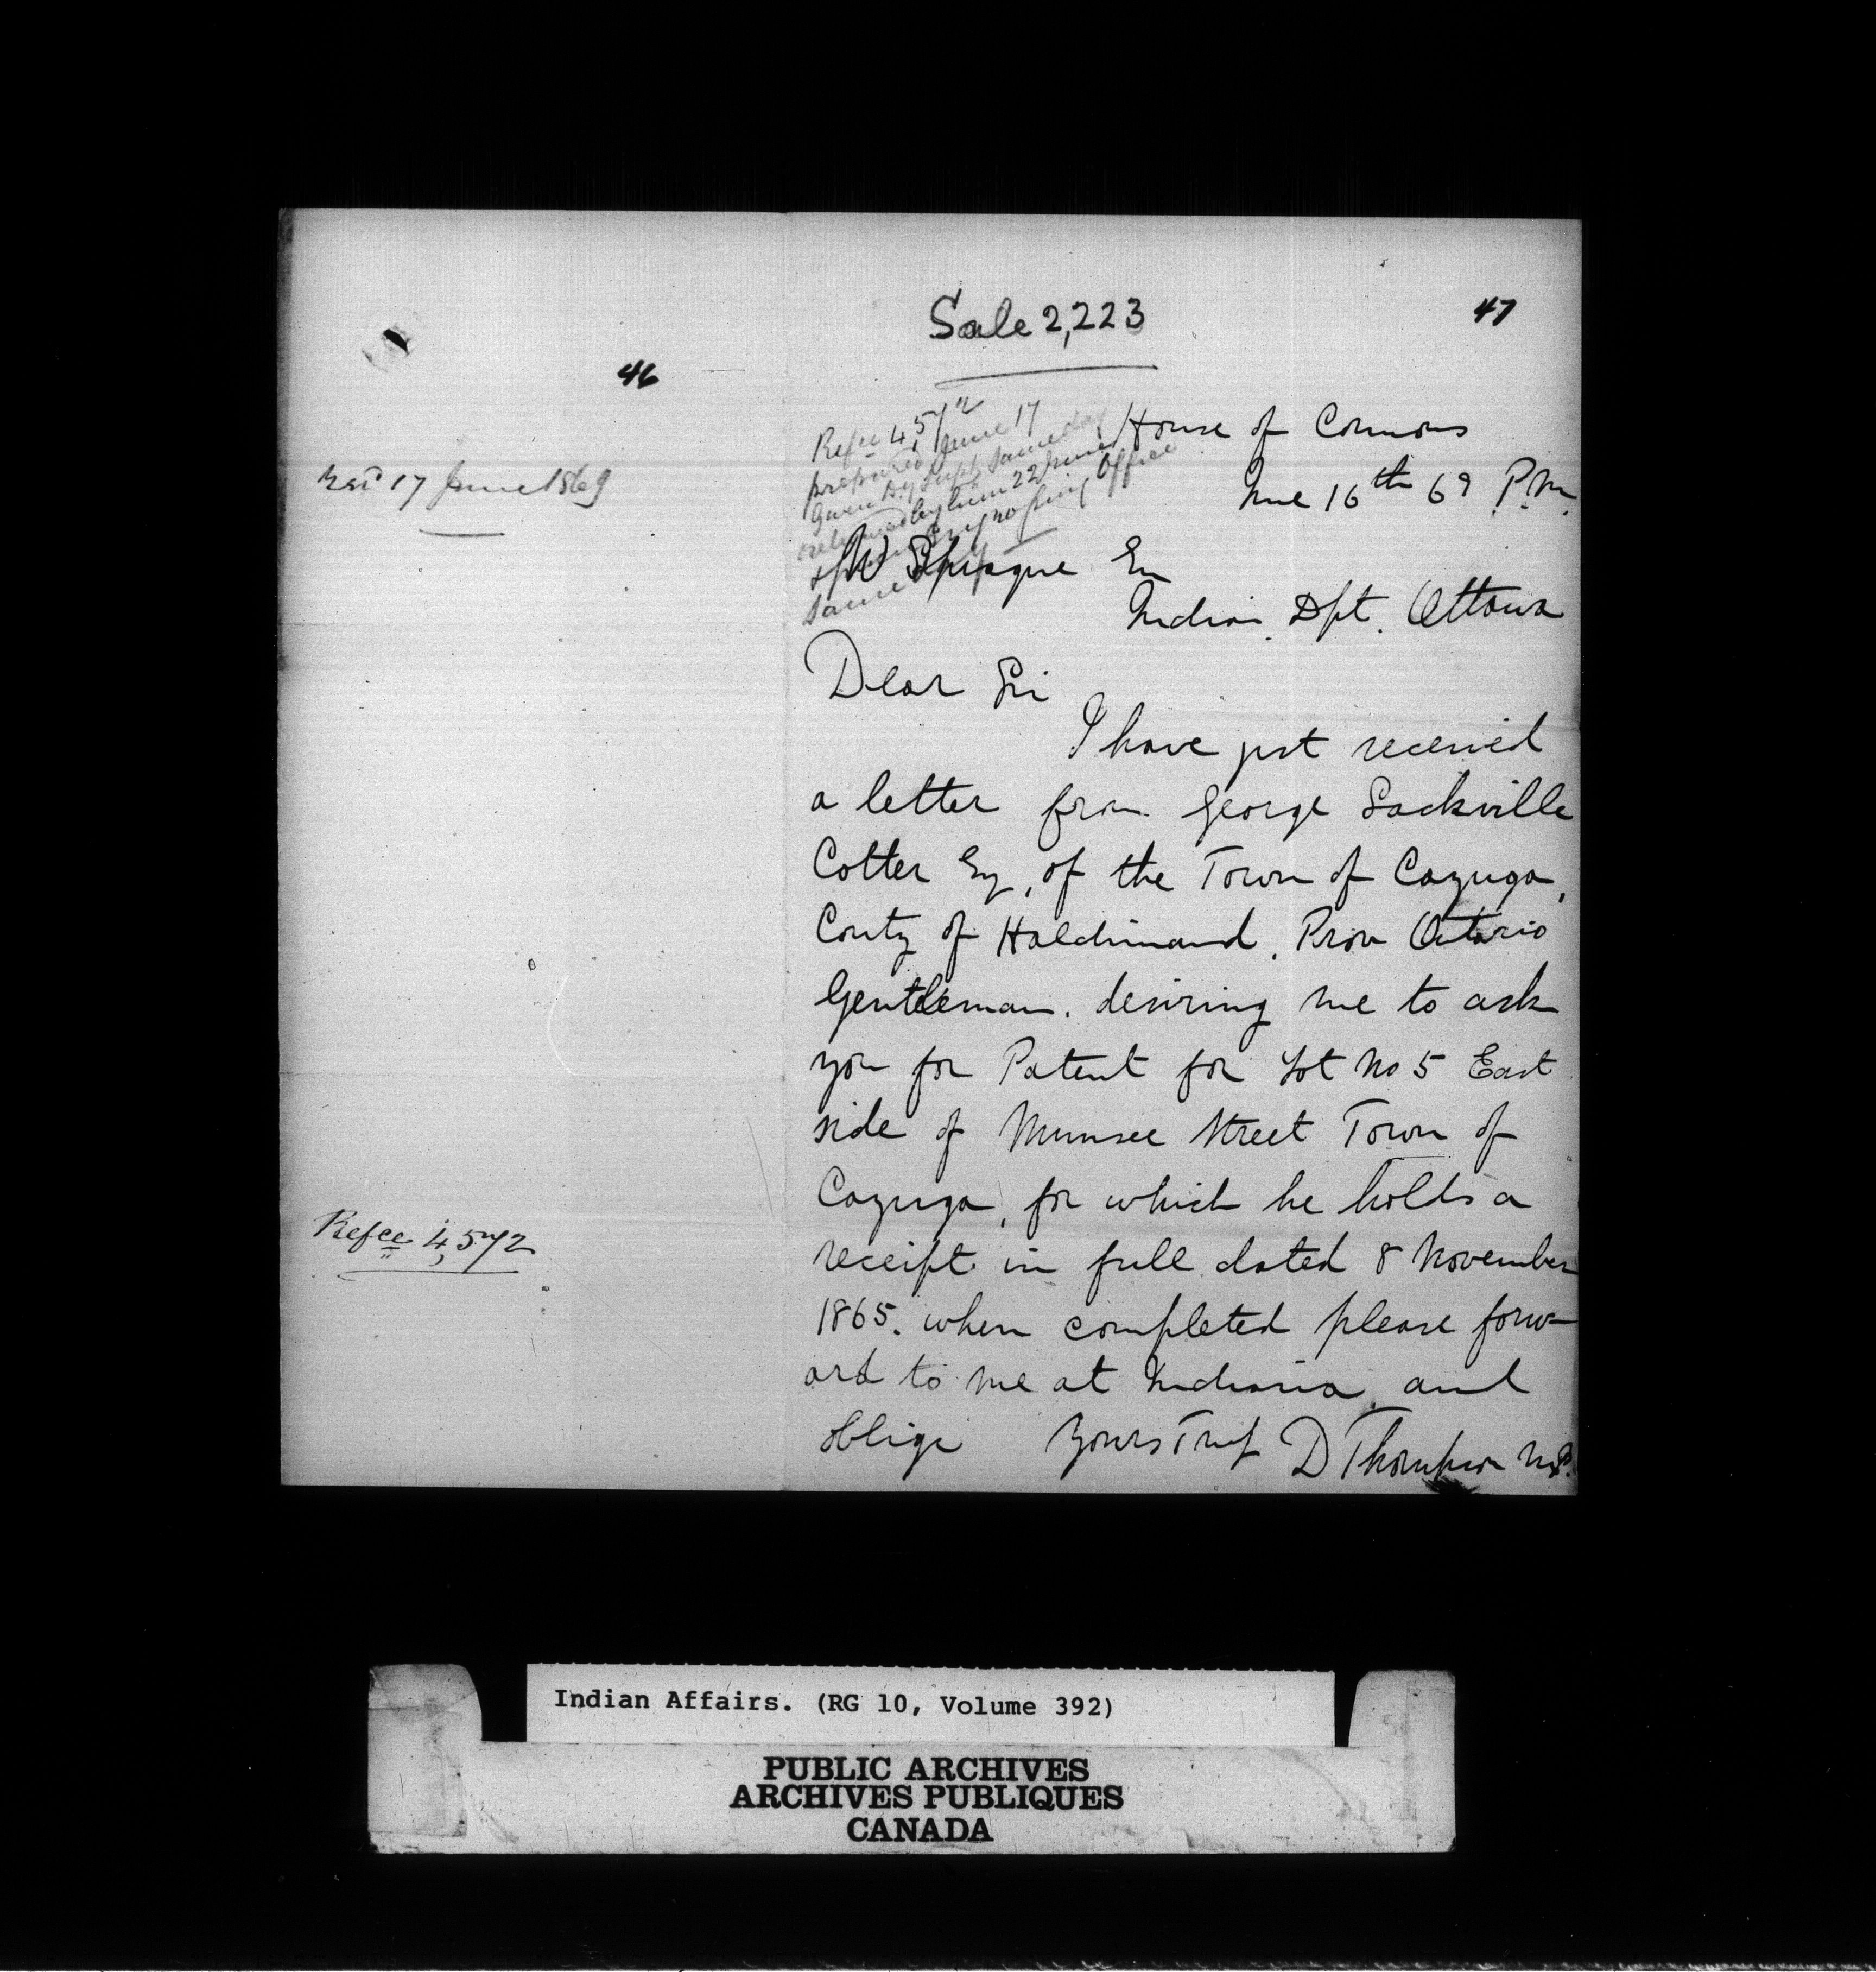 46
Recd 17 June 1869
Refce 4,572
Sale 2,223
47
Refce 4,572
prepared June 17
Given Dy Supt same day
returned by him 22 June
Engrossing Office
same day
House of Commons
June 16th 69 P.M.
W Spragge Esq
Indian Dpt. Ottawa
Dear Sir
I have just received
a letter from George Sackville
Cotter Esq, of the Town of Cayuga,
County of Haldimand, Prov Ontario
Gentleman. desiring me to ask
you for Patent for Lot No 5 East
side of Munsee Street Town of
Cayuga, for which he holds a
receipt in full dated 8 November
1865. when completed please forw-
ard to me at Indiana, and
oblige Yours Truly D Thompson M.P.
Indian Affairs. (RG 10, Volume 392)
PUBLIC ARCHIVES
ARCHIVES PUBLIQUES
CANADA